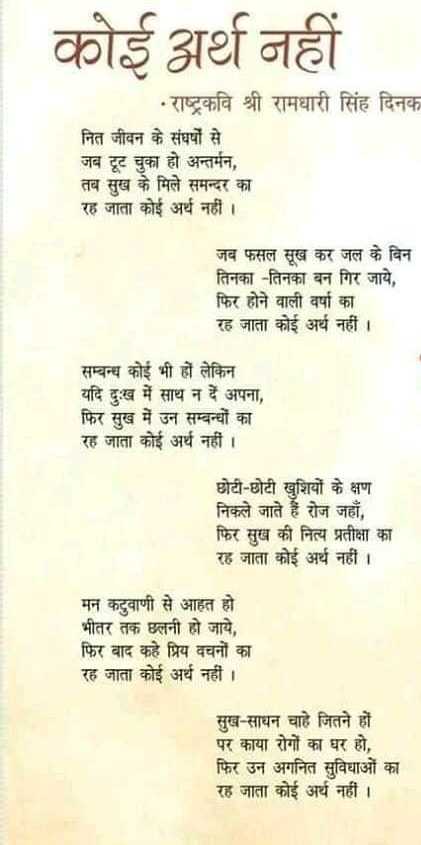 कोई अर्थ नहीं
· राष्ट्रकवि श्री रामधारी सिंह दिनक
नित जीवन के संघर्षों से
जब टूट चुका हो अन्तर्मन,
तब सुख के मिले समन्दर का
रह जाता कोई अर्थ नहीं ।
जब फसल सूख कर जल के बिन
तिनका -तिनका बन गिर जाये,
फिर होने वाली वर्षा का
रह जाता कोई अर्थ नहीं ।
सम्बन्ध कोई भी हों लेकिन
यदि दुःख में साथ न दें अपना,
फिर सुख में उन सम्बन्धों का
रह जाता कोई अर्थ नहीं ।
छोटी-छोटी खुशियों के क्षण
निकले जाते हैं रोज जहाँ,
फिर सुख की नित्य प्रतीक्षा का
रह जाता कोई अर्थ नहीं ।
मन कटुवाणी से आहत हो
भीतर तक छलनी हो जाये,
फिर बाद कहे प्रिय वचनों का
रह जाता कोई अर्थ नहीं ।
सुख-साधन चाहे जितने हों
पर काया रोगों का घर हो,
फिर उन अगनित सुविधाओं का
रह जाता कोई अर्थ नहीं ।